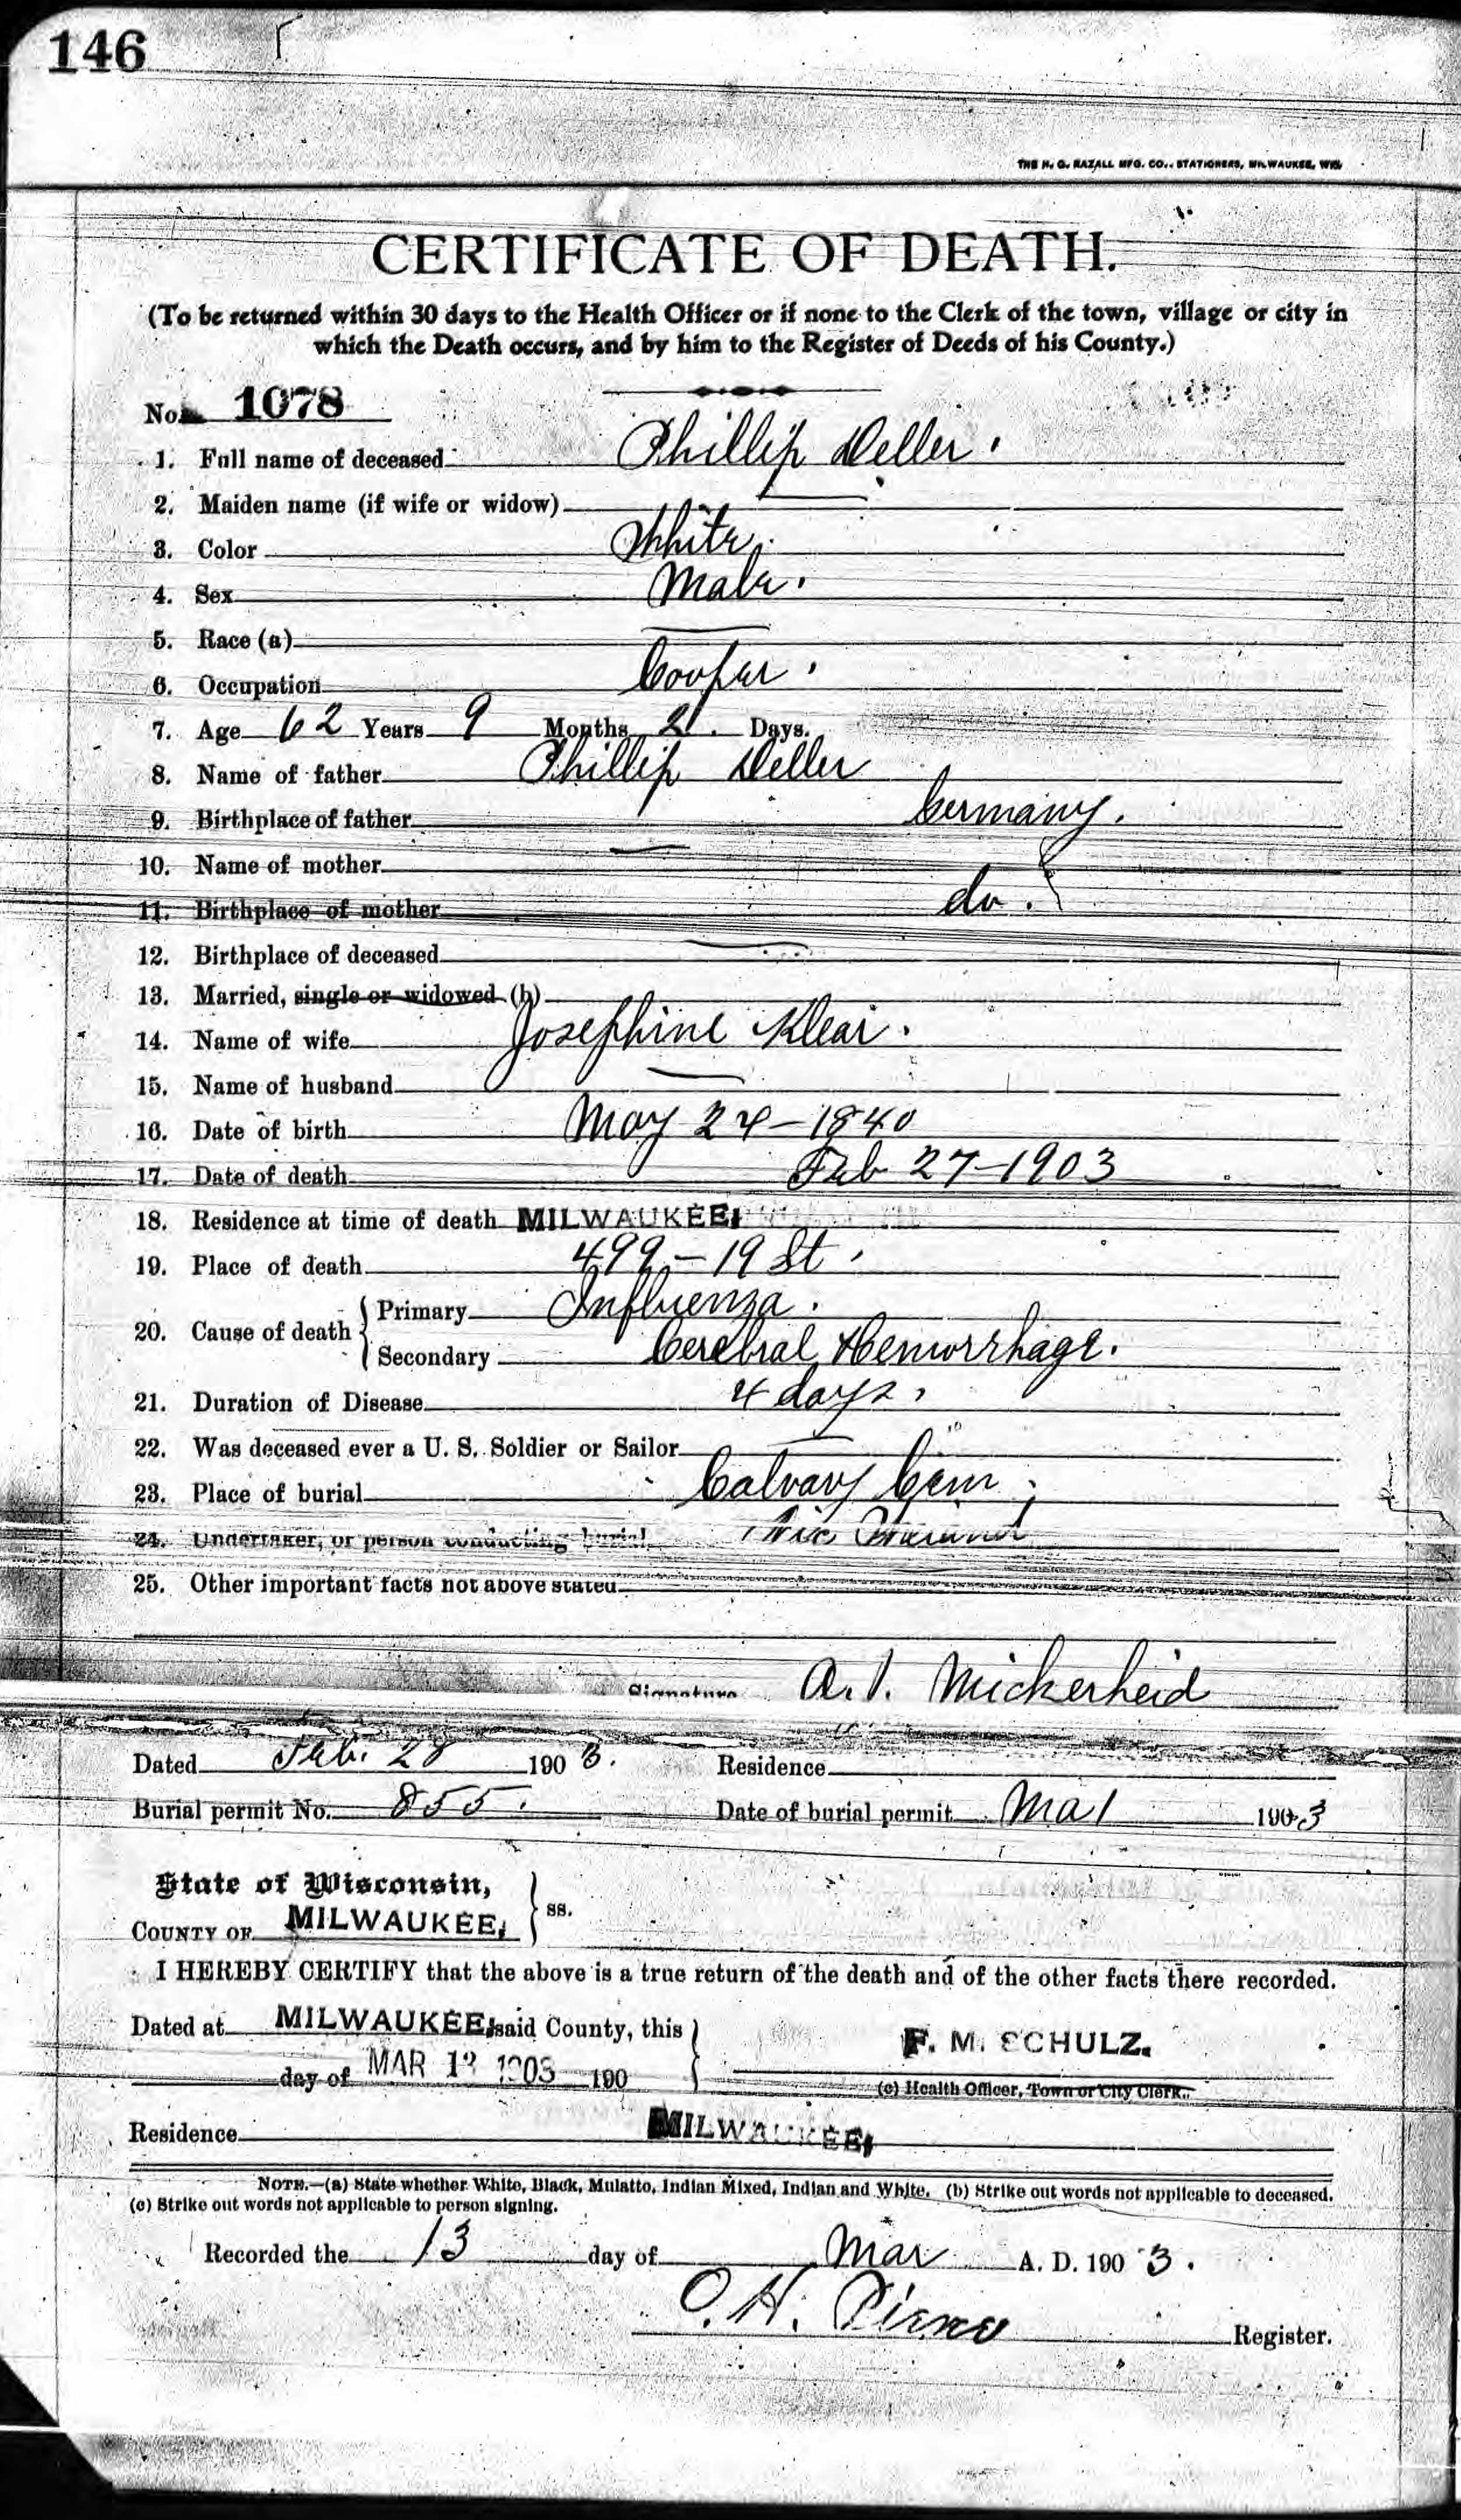 146
THE H. G. RAZALL MFG. CO., STATIONERS, MILWAUKEE, WIS.
CERTIFICATE OF DEATH.
(To be returned within 30 days to the Health Officer or if none to the Clerk of the town, village or city in
which the Death occurs, and by him to the Register of Deeds of his County.)
No. 1078
1. Full name of deceased Phillip Deller.
2. Maiden name (if wife or widow)
3. Color White.
4. Sex Male.
5. Race (a)
6. Occupation Cooper.
7. Age 62 Years 9 Months 2 Days.
8. Name of father Phillip Deller
9. Birthplace of father Germany.
10. Name of mother
11. Birthplace of mother do.
12. Birthplace of deceased
13. Married, single or widowed (b)
14. Name of wife Josephine Klear.
15. Name of husband
16. Date of birth May 24-1840
17. Date of death Feb 27-1903
18. Residence at time of death MILWAUKEE,
19. Place of death 499-19 St.
20. Cause of death { Primary Influenza.
Secondary Cerebral Hemorrhage.
21. Duration of Disease 4 days.
22. Was deceased ever a U. S. Soldier or Sailor
23. Place of burial Calvary Cem.
24. Undertaker, or person conducting burial
25. Other important facts not above stated
Signature A. V. Mickerheid
Dated Feb. 28 1903. Residence
Burial permit No. 855. Date of burial permit Ma 1 1903
State of Wisconsin,
COUNTY OF MILWAUKEE, } ss.
I HEREBY CERTIFY that the above is a true return of the death and of the other facts there recorded.
Dated at MILWAUKEE, said County, this
day of MAR 12 1903 190
F. M. SCHULZ.
(c) Health Officer, Town or City Clerk.
Residence MILWAUKEE,
NOTE.—(a) State whether White, Black, Mulatto, Indian Mixed, Indian and White. (b) Strike out words not applicable to deceased.
(c) Strike out words not applicable to person signing.
Recorded the 13 day of Mar A. D. 1903.
O. H. Pierce Register.